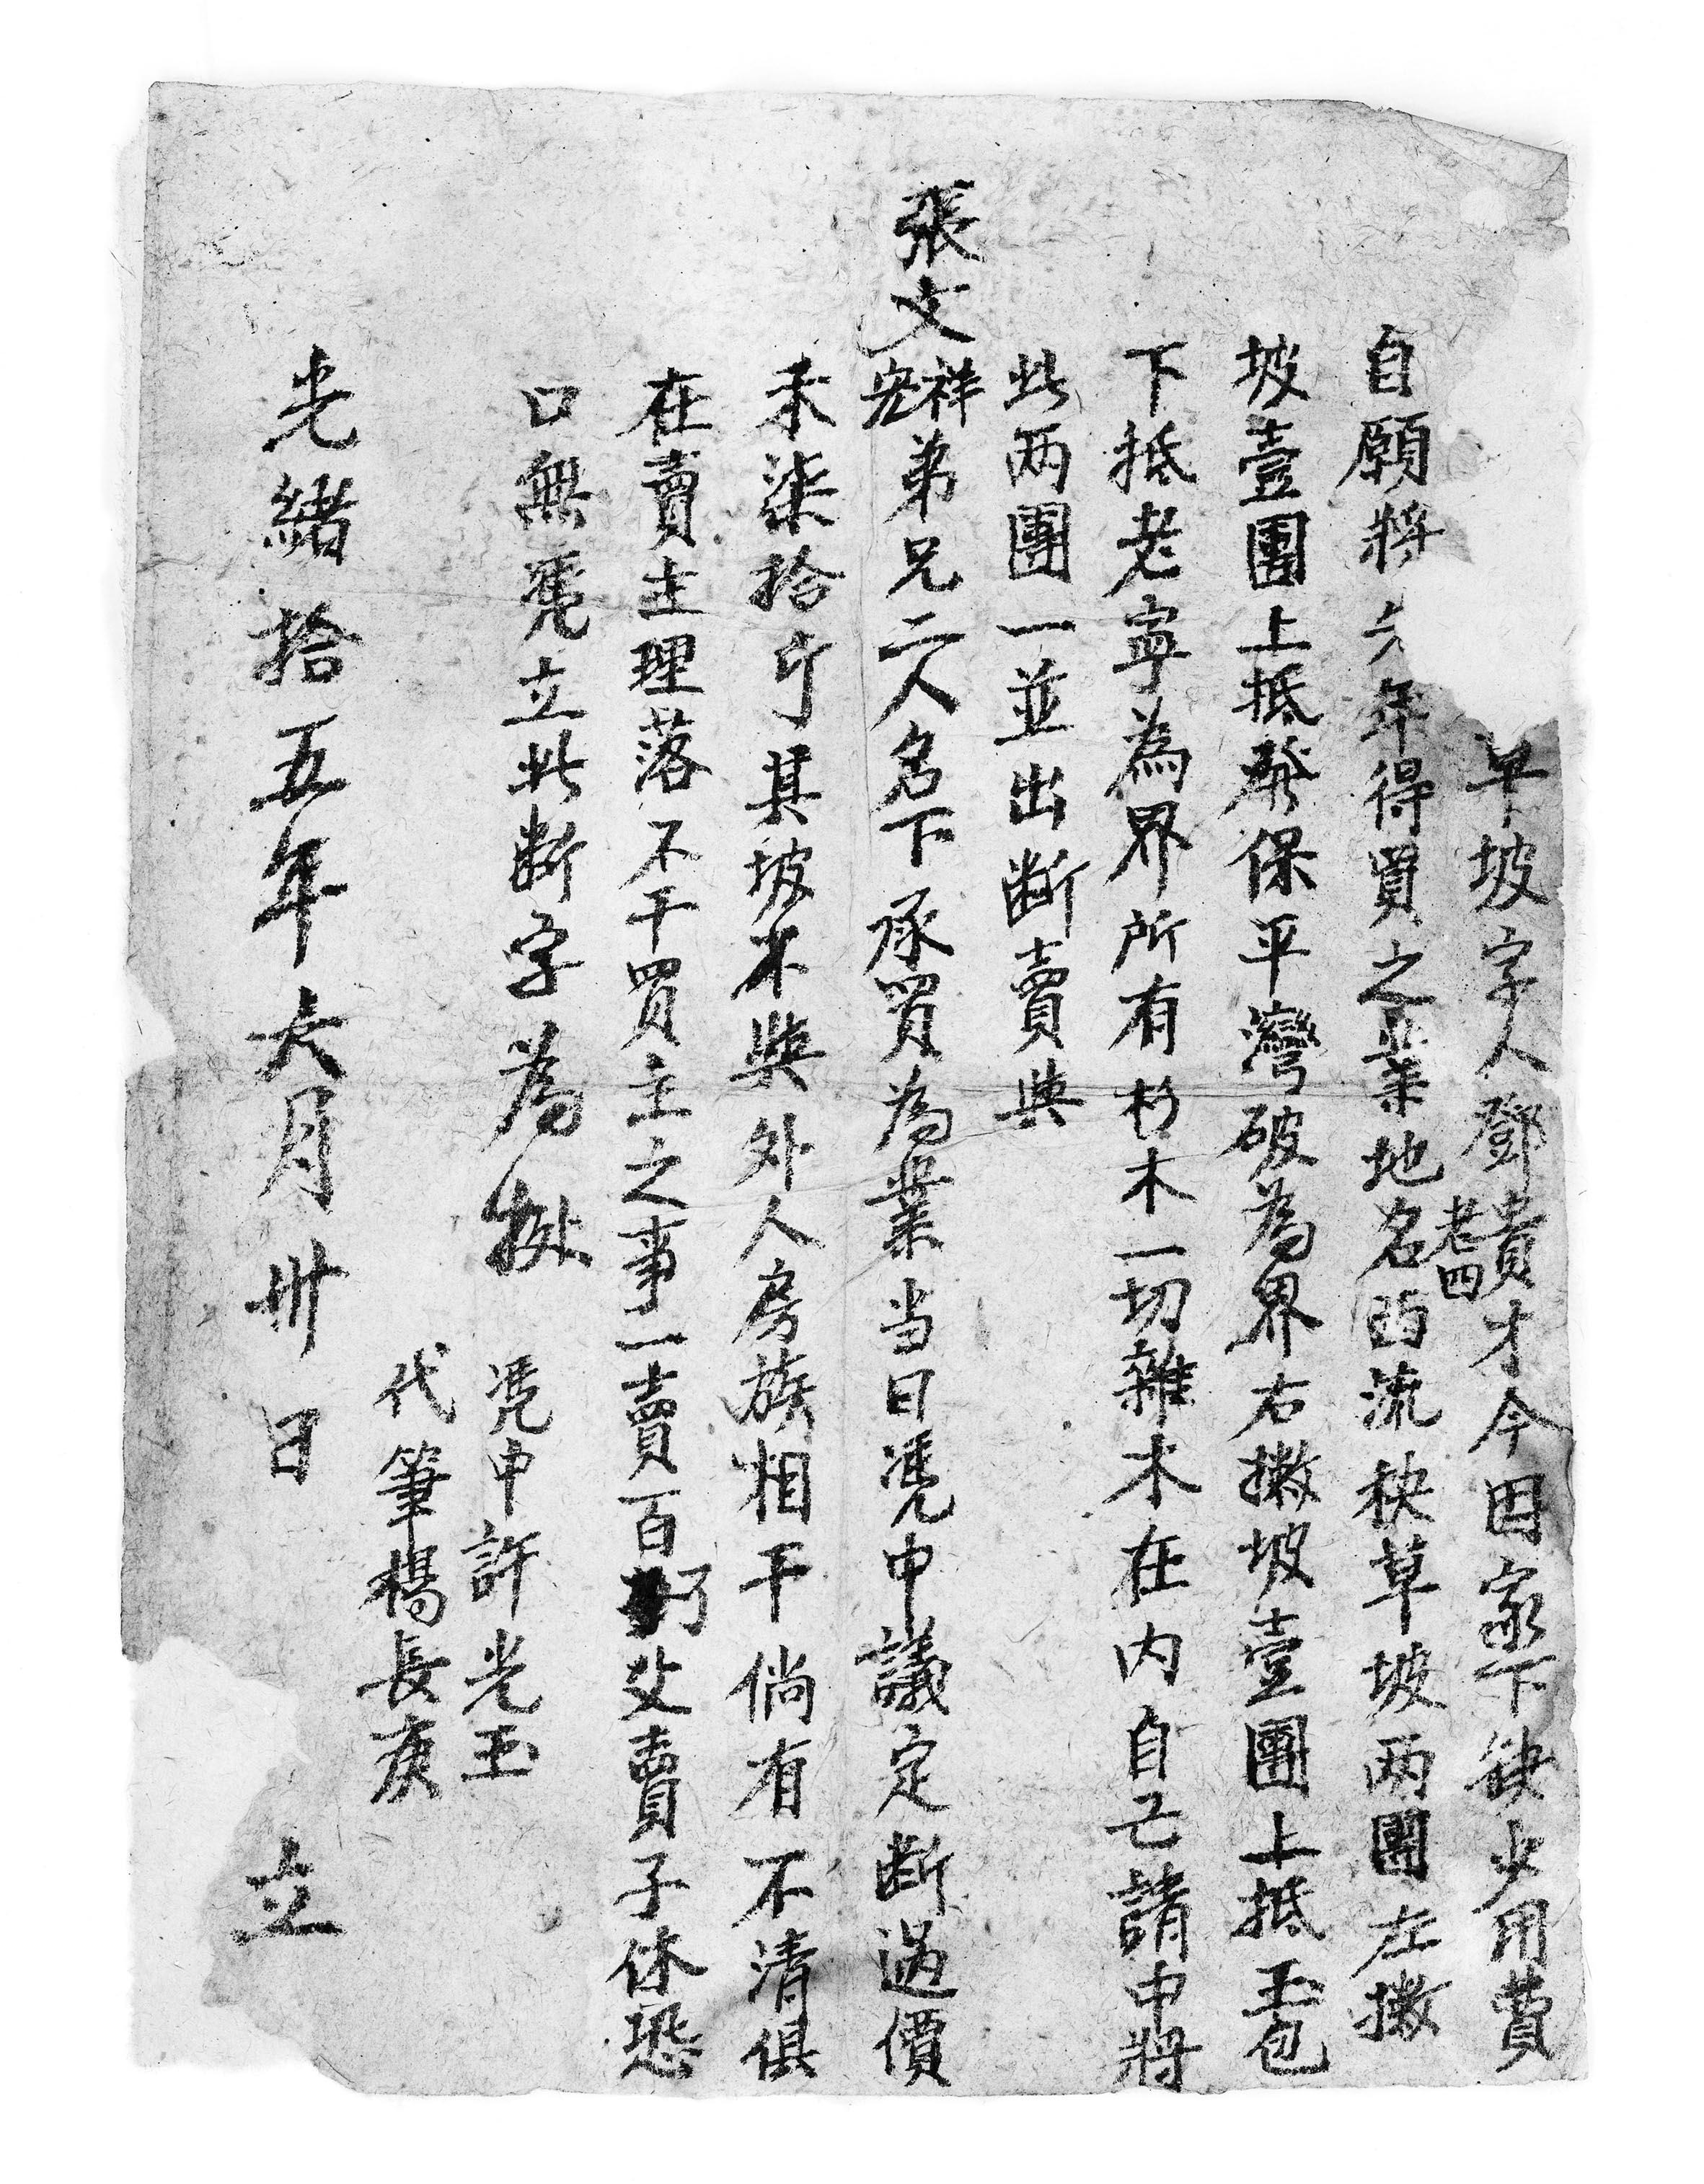 草坡字人鄧貴才老四今因家下缺少用費
自願將六年得買之業地名西流秧草坡两團左撒
坡壹團上抵發保平灣破為界右撒坡壹團上抵玉包
下抵老寧為界所有杉木一切雜木在内自己請中將
此两團一並出斷賣與
張文祥宏弟兄二人名下承買為業当日凴中議定斷過價
禾柒拾斤其坡不與外人房族相干倘有不清俱
在賣主理落不干買主之事一賣百了父賣子休恐
口無凴立此斷字為挩
凴中許光玉
代筆楊長庚
光緒拾五年六月卅日立